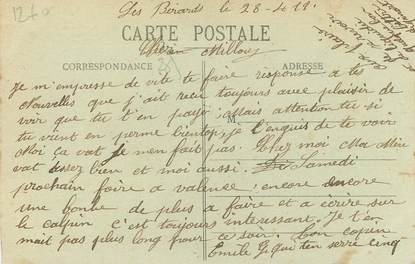 Les Bérards le 28-4 19.
CARTE POSTALE
Cherin Milloux
CORRESPONDANCE
ADRESSE
Je m'empresse de vite te faire response a tes
Nouvelles que j'ait recu toujours avec plaisir de
voir que tu t'en payé. Mais attention tu si
tu vient en perme bientot, je t'enquis de te voir
Moi ça vat je men fait pas. Chez moi Ma Mère
vat assez bien et moi aussi. Samedi
prochain foire a valence, encore encore
une bonbe de plus a faire et a ècrire sur
le calpin c'est toujours interessant. Je t'en
mait pas plus long pour ce soir. Ton copain
Emile Qui ten serre cinq